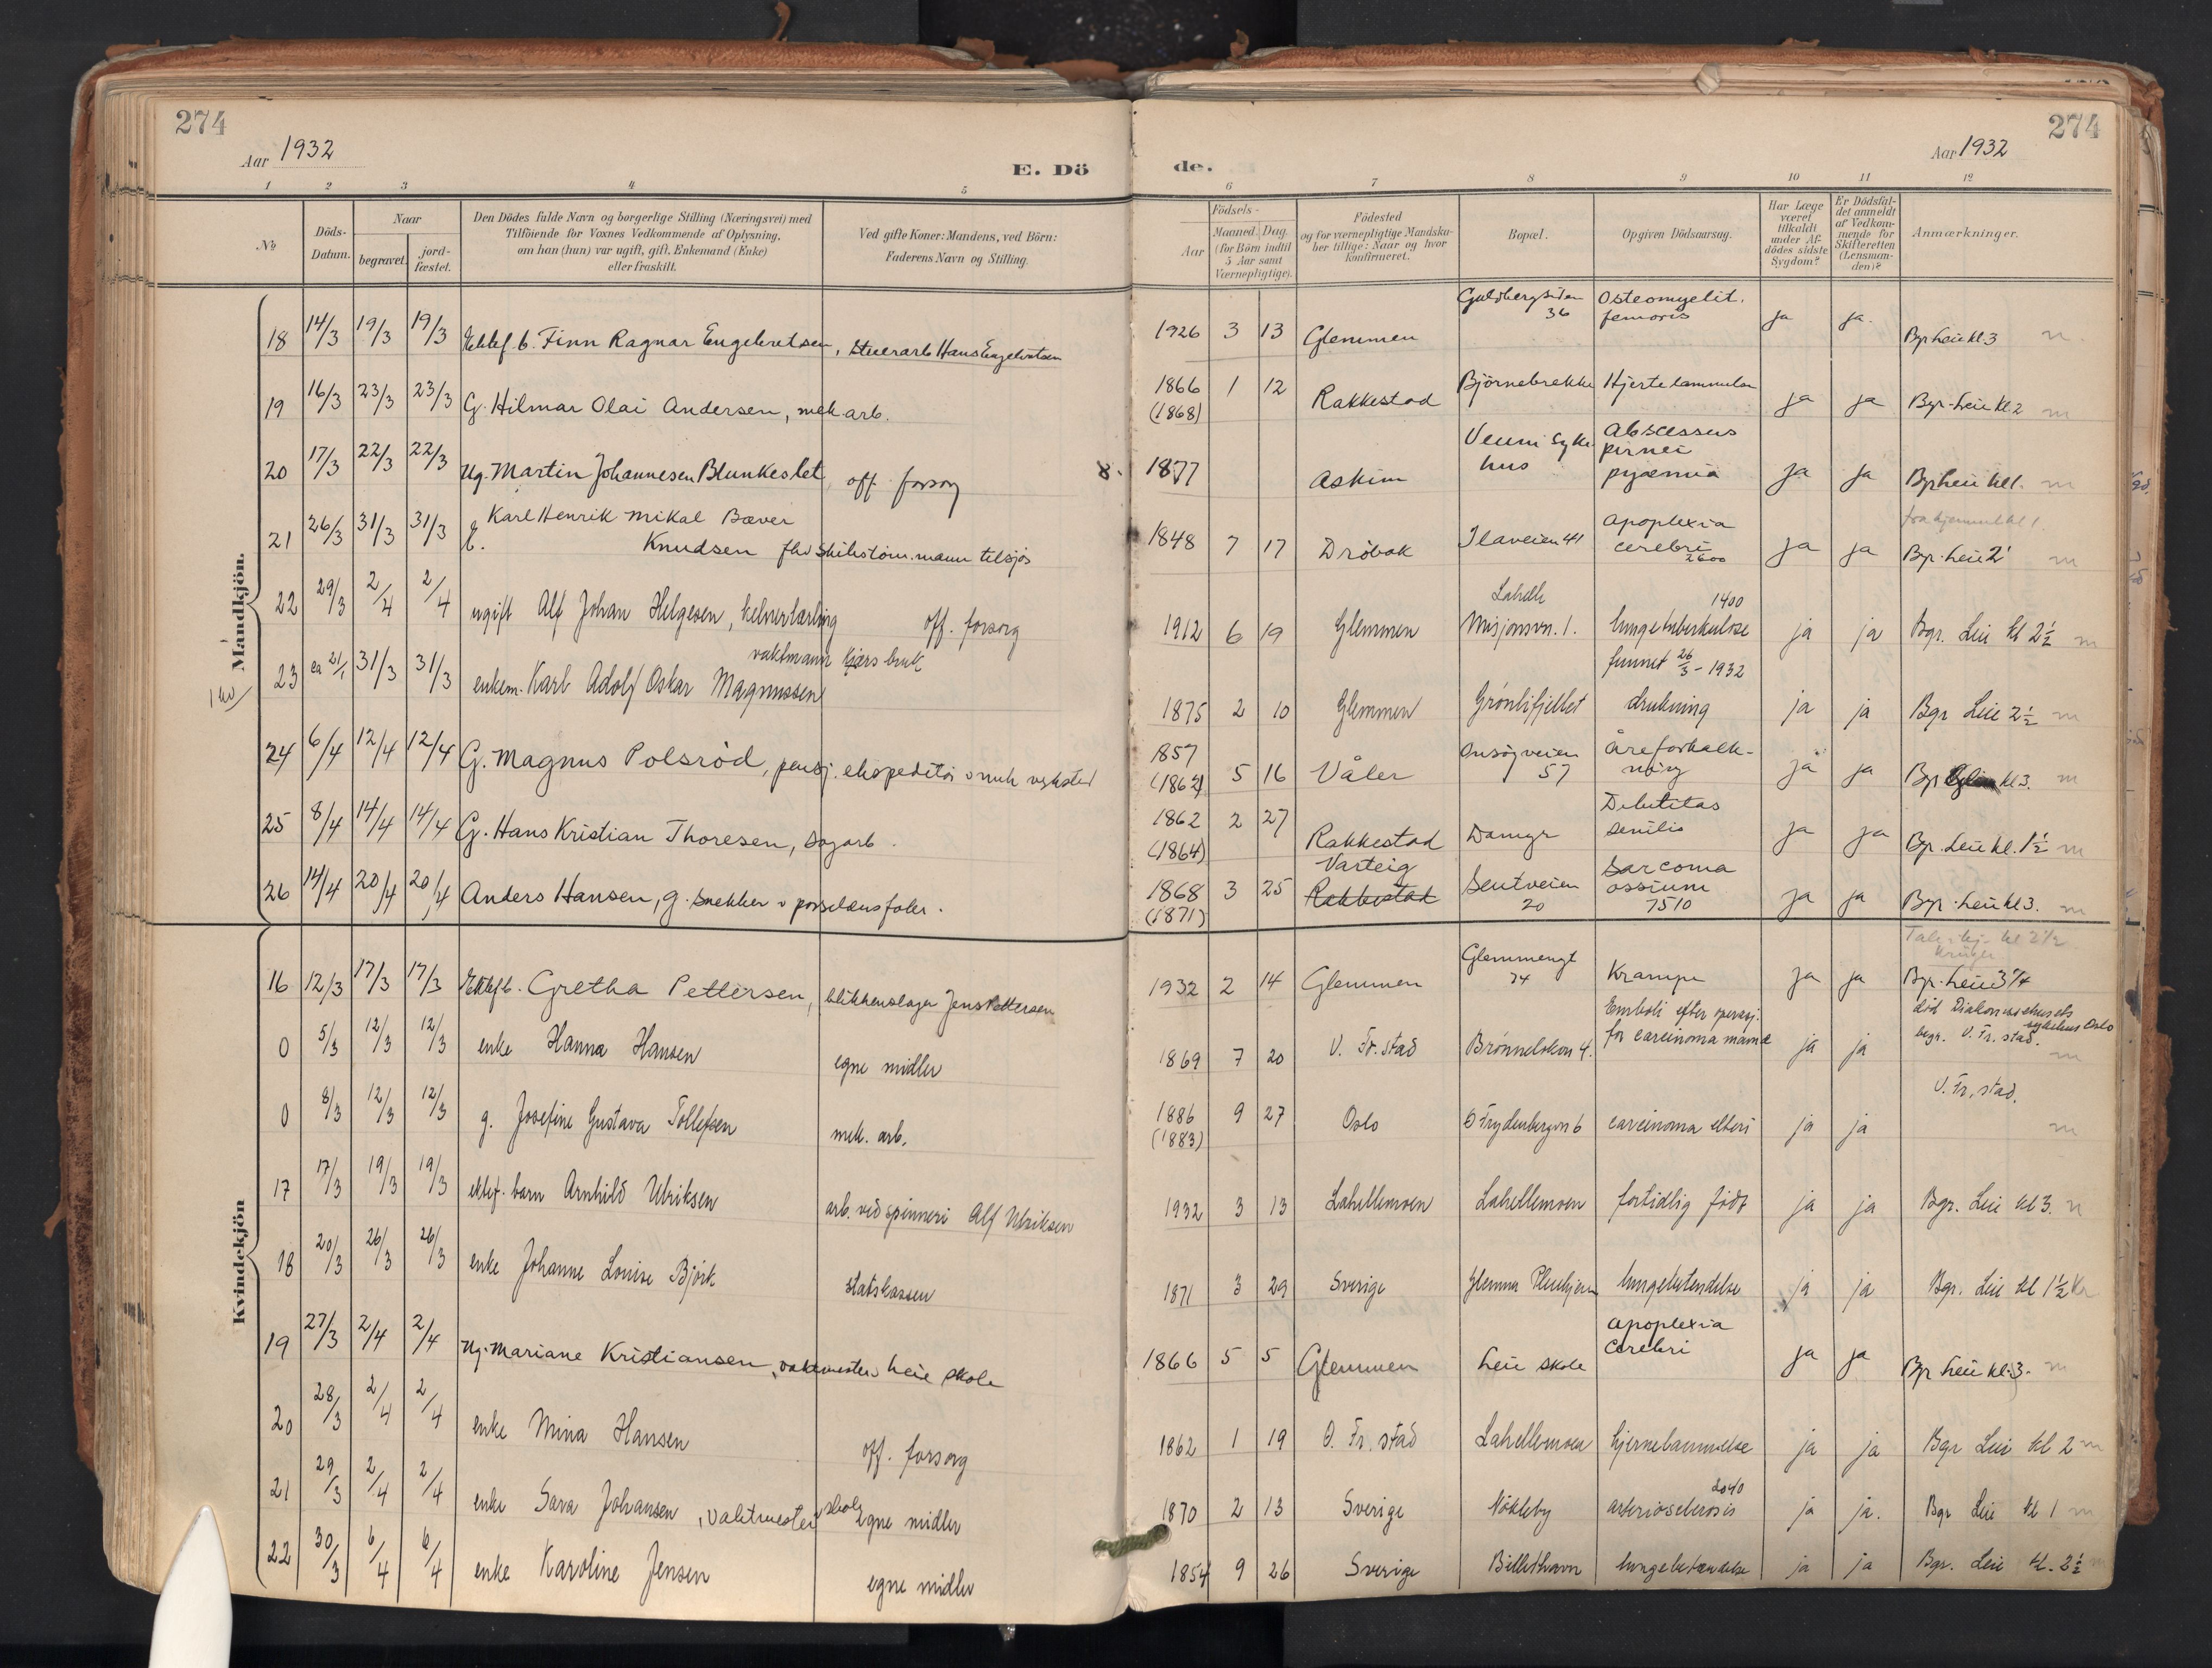 274
Aar 1932
E. Dö
1 2 3 4 5
No.
Döds-Datum.
Naar
begravet.
jord-fæstet.
Den Dödes fulde Navn og borgerlige Stilling (Næringsvei) med
Tilföiende for Voxnes Vedkommende af Oplysning,
om han (hun) var ugift, gift, Enkemand (Enke)
eller fraskilt.
Ved gifte Koner: Mandens, ved Börn:
Faderens Navn og Stilling.
Mandkjön.
18 14/3 19/3 19/3 Ektef. b. Finn Ragnar Engebretsen, Hans Engebretsen
19 16/3 23/3 23/3 G. Hilmar Olai Andersen, mek. arb.
20 17/3 22/3 22/3 Ug. Martin Johannesen Blunkeslet off. forsorg
21 26/3 31/3 31/3 Karl Henrik Mikal Bæver
Knudsen mann tilsjøs
22 29/3 2/4 2/4 ugift Alf Johan Helgesen, kelnerlærling off. forsorg
vaktmann Kjærs bruk
23 ca 21/1 31/3 31/3 enkem. Karl Adolf Oskar Magnussen
24 6/4 12/4 12/4 G. Magnus Polsrød, pensj. ekspeditør
25 8/4 14/4 14/4 G. Hans Kristian Thoresen, sagarb.
26 14/4 20/4 20/4 Anders Hansen, g. snekker v porselensfabr.
Kvindekjön
16 12/3 17/3 17/3 Ektef b. Gretha Pettersen, blikkenslager Jens Pettersen
0 5/3 12/3 12/3 enke Hanna Hansen egne midler
0 8/3 12/3 12/3 g. Josefine Gustava Tollefsen mek. arb.
17 17/3 19/3 19/3 ektef. barn Arnhild Ulriksen arb. ved spinneri Alf Ulriksen
18 20/3 26/3 26/3 enke Johanne Louise Bjørk statskassen
19 27/3 2/4 2/4 Ug. Mariane Kristiansen, vaktmester Leie skole
20 28/3 2/4 2/4 enke Mina Hansen off. forsorg
21 29/3 2/4 2/4 enke Sara Johansen, vaktmester skole egne midler
22 30/3 6/4 6/4 enke Karoline Jensen egne midler
274
Aar 1932
de.
6 7 8 9 10 11 12
Födsels-
Aar
Maaned. Dag.
(for Börn indtil
5 Aar samt
Værnepligtige).
Födested
og for værnepligtige Mandska-
ber tillige: Naar og hvor
konfirmeret.
Bopæl.
Opgiven Dödsaarsag.
Har Læge
været
tilkaldt
under Af-
dödes sidste
Sygdom?
Er Dödsfal-
det anmeldt
af Vedkom-
mende for
Skifteretten
(Lensman-
den)?
Anmærkninger.
1926 3 13 Glemmen Guldbergsiden 36 Osteomyelit. femoris ja ja. Bgr Leie kl 3 m
1866 (1868) 1 12 Rakkestad Bjørnebrekke Hjertelammelse ja ja Bgr. Leie kl 2 m
1877 Askim Veum Sykehus Abscessus pyæmia ja ja Bgr Leie kl 1. m
1848 7 17 Drøbak Ilaveien 41 apoplexia cerebri 2600 ja ja fra hjemmet kl 1. Bgr. Leie 2 m
1912 6 19 Glemmen Lahelle Misjonsvn. 1. 1400 lungetuberkulose ja ja Bgr. Leie kl 2½ m
funnet 26/3 - 1932
1875 2 10 Glemmen Grønlifjellet drukning ja ja Bgr Leie 2½ m
1857 (1862) 5 16 Våler Onsøyveien 57 Åreforkalkning ja ja Bgr kl 3. m
1862 (1864) 2 27 Rakkestad Damgr Debilitas senilis ja ja Bgr. Leie kl. 1½ m
1868 (1871) 3 25 Varteig Rakkestad Seutveien 20 Sarcoma ossium 7510 ja ja Bgr. Leie kl 3. m
1932 2 14 Glemmen Glemmengt 74 Krampe ja ja kl 2½ Krüger Bgr. Leie 3¼
1869 7 20 V. Fr. stad Brønneløkken 4. Emboli efter operasj. for carcinoma mamæ ja ja død Diakonissehusets sykehus Oslo begr. V. Fr. stad. m
1886 (1883) 9 27 Oslo Ø Frydenbergvn 6 carcinoma uteri ja ja V. Fr. stad. m
1932 3 13 Lahellemoen Lahellemoen fortidlig født ja ja Bgr. Leie kl 3. m
1871 3 29 Sverige Glemmen Pleiehjem lungebetendelse ja ja Bgr. Leie kl 1½ Kr
1866 5 5 Glemmen Leie skole apoplexia cerebri ja ja Bgr Leie kl. 3. m
1862 1 19 O. Fr. stad Lahellemoen hjernelammelse ja ja Bgr Leie kl 2 m
1870 2 13 Sverige Nøkleby 2040 arteriosclerosis ja ja. Bgr Leie kl 1 m
1854 9 26 Sverige Billedhavn lungebetændelse ja ja Bgr. Leie kl. 2½ m